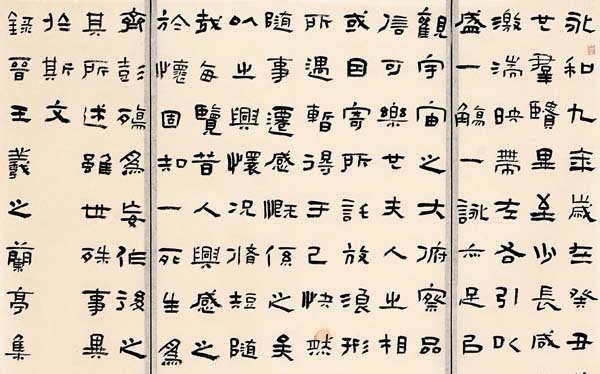 永和九年歲在癸丑
也羣賢畢至少長咸
激湍映帶左右引以
盛一觴一詠亦足以
觀宇宙之大俯察品
信可樂也夫人之相
或因寄所託放浪形
所遇暫得于己快然
隨事遷感慨係之矣
以之興懷況脩短隨
哉每覽昔人興感之
於懷固知一死生為
齊彭殤為妄作後之
其所述雖世殊事異
於斯文
錄晉王羲之蘭亭集